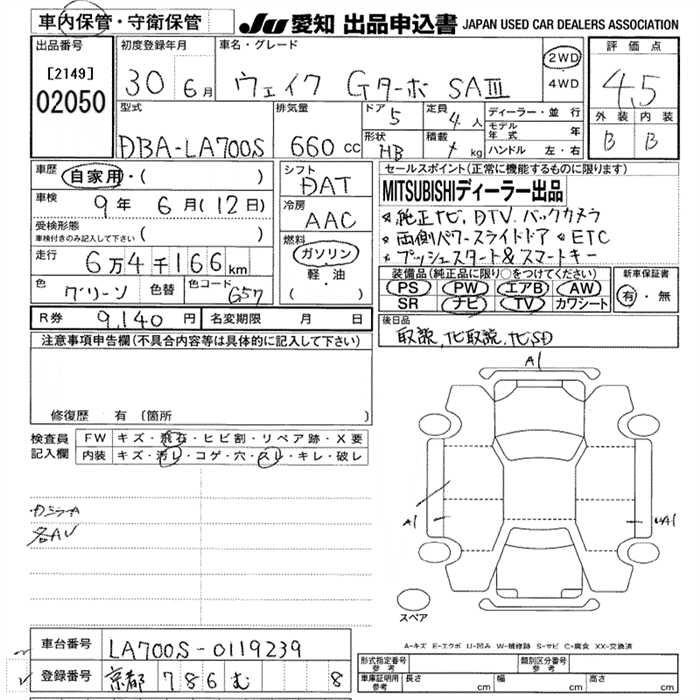 車内保管・守衛保管
JU 愛知 出品申込書 JAPAN USED CAR DEALERS ASSOCIATION
出品番号
[2149]
02050
初度登録年月
30 6月
車名・グレード
ウェイク Gターボ SAⅢ
2WD
・
4WD
評価点
4.5
外装 内装
B B
型式
DBA-LA700S
排気量
660 cc
ドア
5
定員
4 人
形状
HB
積載
kg
ディーラー・並行
モデル年式 年
ハンドル 左・右
車歴
自家用・( )
車検
9年 6月(12日)
受検形態
車検付きのみ記入して下さい ( )
走行
6万4千166 km
色
グリーン
色替
色コード
G57
シフト
DAT
冷房
AAC
燃料
ガソリン
軽・油
( )
セールスポイント(正常に機能するものに限ります)
MITSUBISHIディーラー出品
* 純正ナビ、DTV、バックカメラ
* 両側パワースライドドア * ETC
* プッシュスタート&スマートキー
装備品(純正品に限り○をつけてください)
PS PW エアB AW
SR ナビ TV カワシート
新車保証書
有・無
R券 9,140 円
名変期限 月 日
後日品
取説、ナビ取説、ナビSD
注意事項申告欄(不具合内容等は具体的に記入して下さい)
修復歴 有(箇所 )
検査員
記入欄
FW キズ・飛石・ヒビ割・リペア跡・X要
内装 キズ・汚レ・コゲ・穴・スレ・キレ・破レ
A1
A1
各AU
スペア
A-キズ E-エクボ U-凹み W-補修跡 S-サビ C-腐食 XX-交換済
車台番号 LA700S-0119239
登録番号 京都 786 む 8
形式指定番号
参考
類別区分番号
参考
車庫証明用
参考
長さ cm 幅 cm 高さ cm